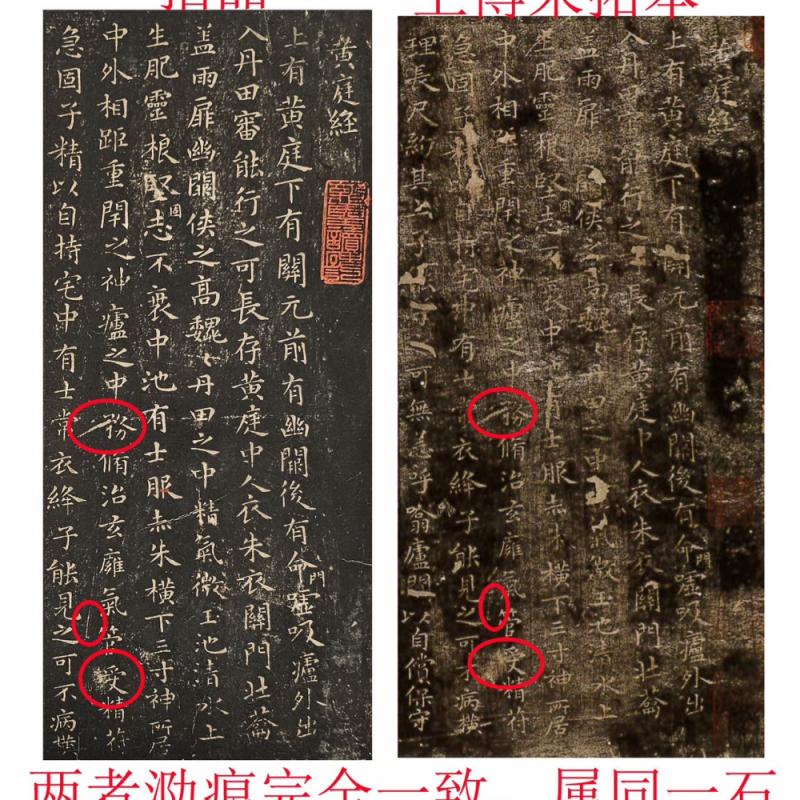 上博宋拓本
黄庭經
上有黄庭下有關元前有幽闕後有命門嘘吸廬外出
入丹田審能行之可長存黄庭中人衣朱衣關門壯蘥
盖兩扉幽闕俠之高魏〻丹田之中精氣微玉池清水上
生肥靈根堅固志不衰中池有士服赤朱橫下三寸神所居
中外相距重閇之神廬之中務脩治玄廱氣管受精符
急固子精以自持宅中有士常衣絳子能見之可不病橫
黄庭經
上有黄庭下有關元前有幽闕後有命門嘘吸廬外出
入丹田審能行之可長存黄庭中人衣朱衣關門壯蘥
盖兩扉幽闕俠之高魏〻丹田之中精氣微玉池清水上
生肥靈根堅固志不衰中池有士服赤朱橫下三寸神所居
中外相距重閇之神廬之中務脩治玄廱氣管受精符
急固子精以自持宅中有士常衣絳子能見之可不病橫
理長尺約其上子能可無恙呼噏廬間以自償保守
两者泐痕完全一致 属同一石